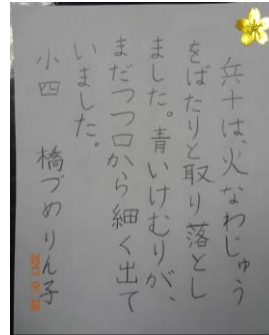 兵十は、火なわじゅう
をばたりと取り落とし
ました。青いけむりが、
まだつつ口から細く出て
いました。
小四　橋づめりん子